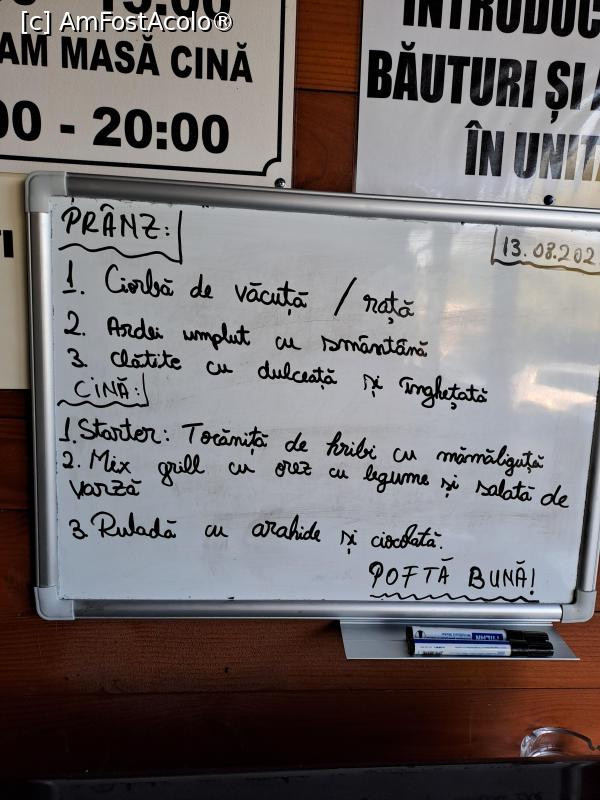 [c] AmFostAcolo®
AM MASĂ CINĂ
00 - 20:00
INTRODUC
BĂUTURI ȘI
ÎN UNIT
PRÂNZ:
13.08.202
1. Ciorbă de văcuță / rață
2. Ardei umplut cu smântână
3. clătite cu dulceață și înghețată
CINĂ:
1. Starter: Tocăniță de hribi cu mămăliguță
2. Mix grill cu orez cu legume și salată de
varză
3. Ruladă cu arahide și ciocolată.
POFTĂ BUNĂ!